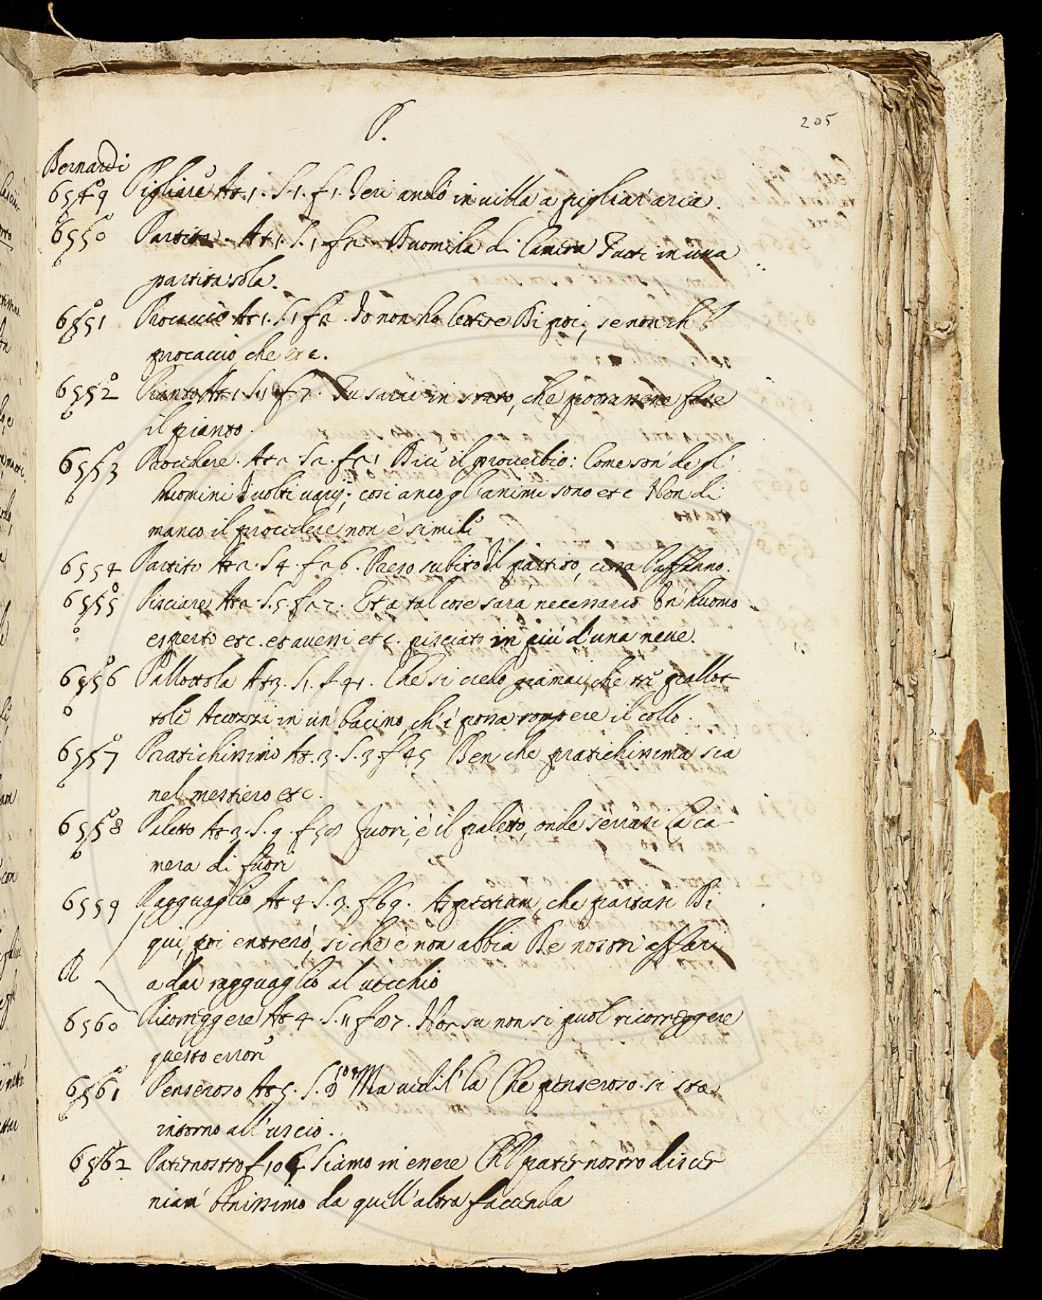 P.
205
Bernardi
6549 Pigliare At. 1. S. 1. f. 1. Ieri andò in villa a pigliar aria.
6550 Partita. At. 1. S. 1. f. 2. Buomila di Camera Tutti in una
partita sola.
6551 Procaccio At. 1. S. 1. f. 2. Io non ho lettere Di poi, se non ch
procaccio che etc.
6552 Pianto At. 1. S. f. 7. in stato, che potrassene fare
il pianto.
6553 Procedere. At. 2. S. 2. f. 21 Dice il proverbio: Come son' de gl'
huomini i volti varij; così anco gl'animi sono etc Non di
manco il procedere non è simile
6554 Partito At. 2. S. 4. f. 26. Preso subito il partito, corsa Caffaro.
6555 Pisciare At. 2. S. 5. f. 27. Et a tal cose sarà necessario Un' huomo
esperto etc. et avessi etc. pisciato in più d'una neve.
6556 Pallottola At. 3. S. 1. f. 41. Che si credo giamai, che tre pallot
tole Accozzi in un' bacino, ch'i possa rompere il collo.
6557 Pratichissimo At. 3. S. 3 f. 45 Ben che pratichissima sia
nel mestiero etc.
6558 Paletto At. 3. S. 9. f. 58 Fuori, è il paletto, onde serrasi la ca-
mera di fuori
6559 Ragguaglio At. 4. S. 3. f. 69. Aspettiam, che partasi Di
qui, poi entrerò, si che e' non abbia De' nostri affari
a dar ragguaglio al vecchio
R
6560 Ricorreggere At. 4. S. 11 f. 87. Hor su non si puol ricorreggere
questo errore
6561 Penseroso At. 5. S. 9 Ma vedil' là Che penseroso si sta
intorno all'uscio.
6562 Paternostro f. 104 Siamo in essere Ch'l paternostro discer
niam' benissimo da quell'altra facenda